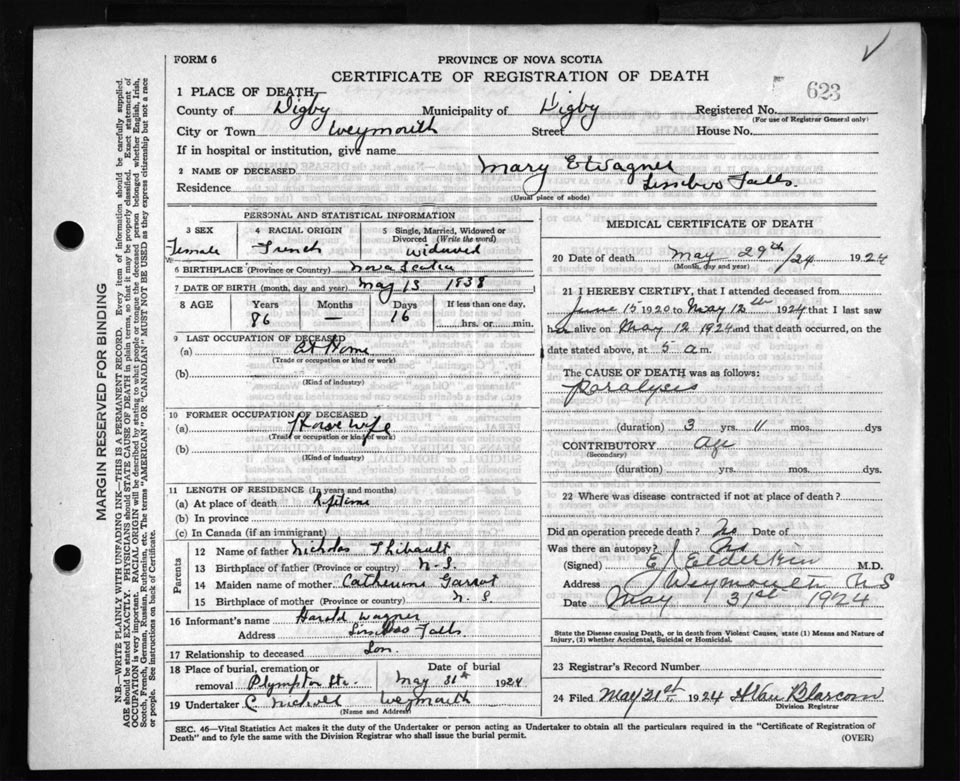 FORM 6
PROVINCE OF NOVA SCOTIA
CERTIFICATE OF REGISTRATION OF DEATH
623
1 PLACE OF DEATH
County of Digby Municipality of Digby Registered No.
(For use of Registrar General only)
City or Town Weymouth Street House No.
If in hospital or institution, give name
2 NAME OF DECEASED Mary E Wagner
Residence Sissiboo Falls.
(Usual place of abode)
PERSONAL AND STATISTICAL INFORMATION
3 SEX 4 RACIAL ORIGIN 5 Single, Married, Widowed or
Divorced (Write the word)
Female French Widowed
6 BIRTHPLACE (Province or Country) Nova Scotia
7 DATE OF BIRTH (month, day and year) May 13 1838
8 AGE Years Months Days If less than one day,
86 — 16 hrs. or min.
9 LAST OCCUPATION OF DECEASED
(a) At Home
(Trade or occupation or kind or work)
(b)
(Kind of industry)
10 FORMER OCCUPATION OF DECEASED
(a) House wife
(Trade or occupation or kind of work)
(b)
(Kind of industry)
11 LENGTH OF RESIDENCE (In years and months)
(a) At place of death Lifetime
(b) In province
(c) In Canada (if an immigrant)
Parents
12 Name of father Nicholas Thibault
13 Birthplace of father (Province or country) N.S.
14 Maiden name of mother Catherine
15 Birthplace of mother (Province or country) N.S
16 Informant's name Harold Wagner
Address Sissiboo Falls
17 Relationship to deceased Son.
18 Place of burial, cremation or Date of burial
removal Plympton Sta. May 31st 1924
19 Undertaker C Weymouth
(Name and Address)
MEDICAL CERTIFICATE OF DEATH
20 Date of death May 29th /24 1924
(Month, day and year)
21 I HEREBY CERTIFY, that I attended deceased from
June 15 1920 to May 12th 1924 that I last saw
her alive on May 12 1924 and that death occurred, on the
date stated above, at 5 a m.
The CAUSE OF DEATH was as follows:
Paralysis
(duration) 3 yrs. 11 mos. dys
CONTRIBUTORY Age
(Secondary)
(duration) yrs. mos. dys.
22 Where was disease contracted if not at place of death?
Did an operation precede death? No Date of
Was there an autopsy? No
(Signed) E J Elderkin M.D.
Address Weymouth NS
Date May 31st 1924
State the Disease causing Death, or in death from Violent Causes, state (1) Means and Nature of
Injury, (2) whether Accidental, Suicidal or Homicidal.
23 Registrar's Record Number
24 Filed May 21st 1924
Division Registrar
SEC. 46—Vital Statistics Act makes it the duty of the Undertaker or person acting as Undertaker to obtain all the particulars required in the "Certificate of Registration of
Death" and to fyle the same with the Division Registrar who shall issue the burial permit.
(OVER)
MARGIN RESERVED FOR BINDING
N.B.—WRITE PLAINLY WITH UNFADING INK—THIS IS A PERMANENT RECORD. Every item of information should be carefully supplied.
AGE should be stated EXACTLY. PHYSICIANS should STATE CAUSE OF DEATH in plain terms, so that it may be properly classified. Exact statement of
OCCUPATION is very important. RACIAL ORIGIN will be described by stating to what people or tongue the deceased person belonged whether English, Irish,
Scotch, French, German, Russian, Ruthenian, etc. The terms "AMERICAN" OR "CANADIAN" MUST NOT BE USED as they express citizenship but not a race
or people. See instructions on back of Certificate.